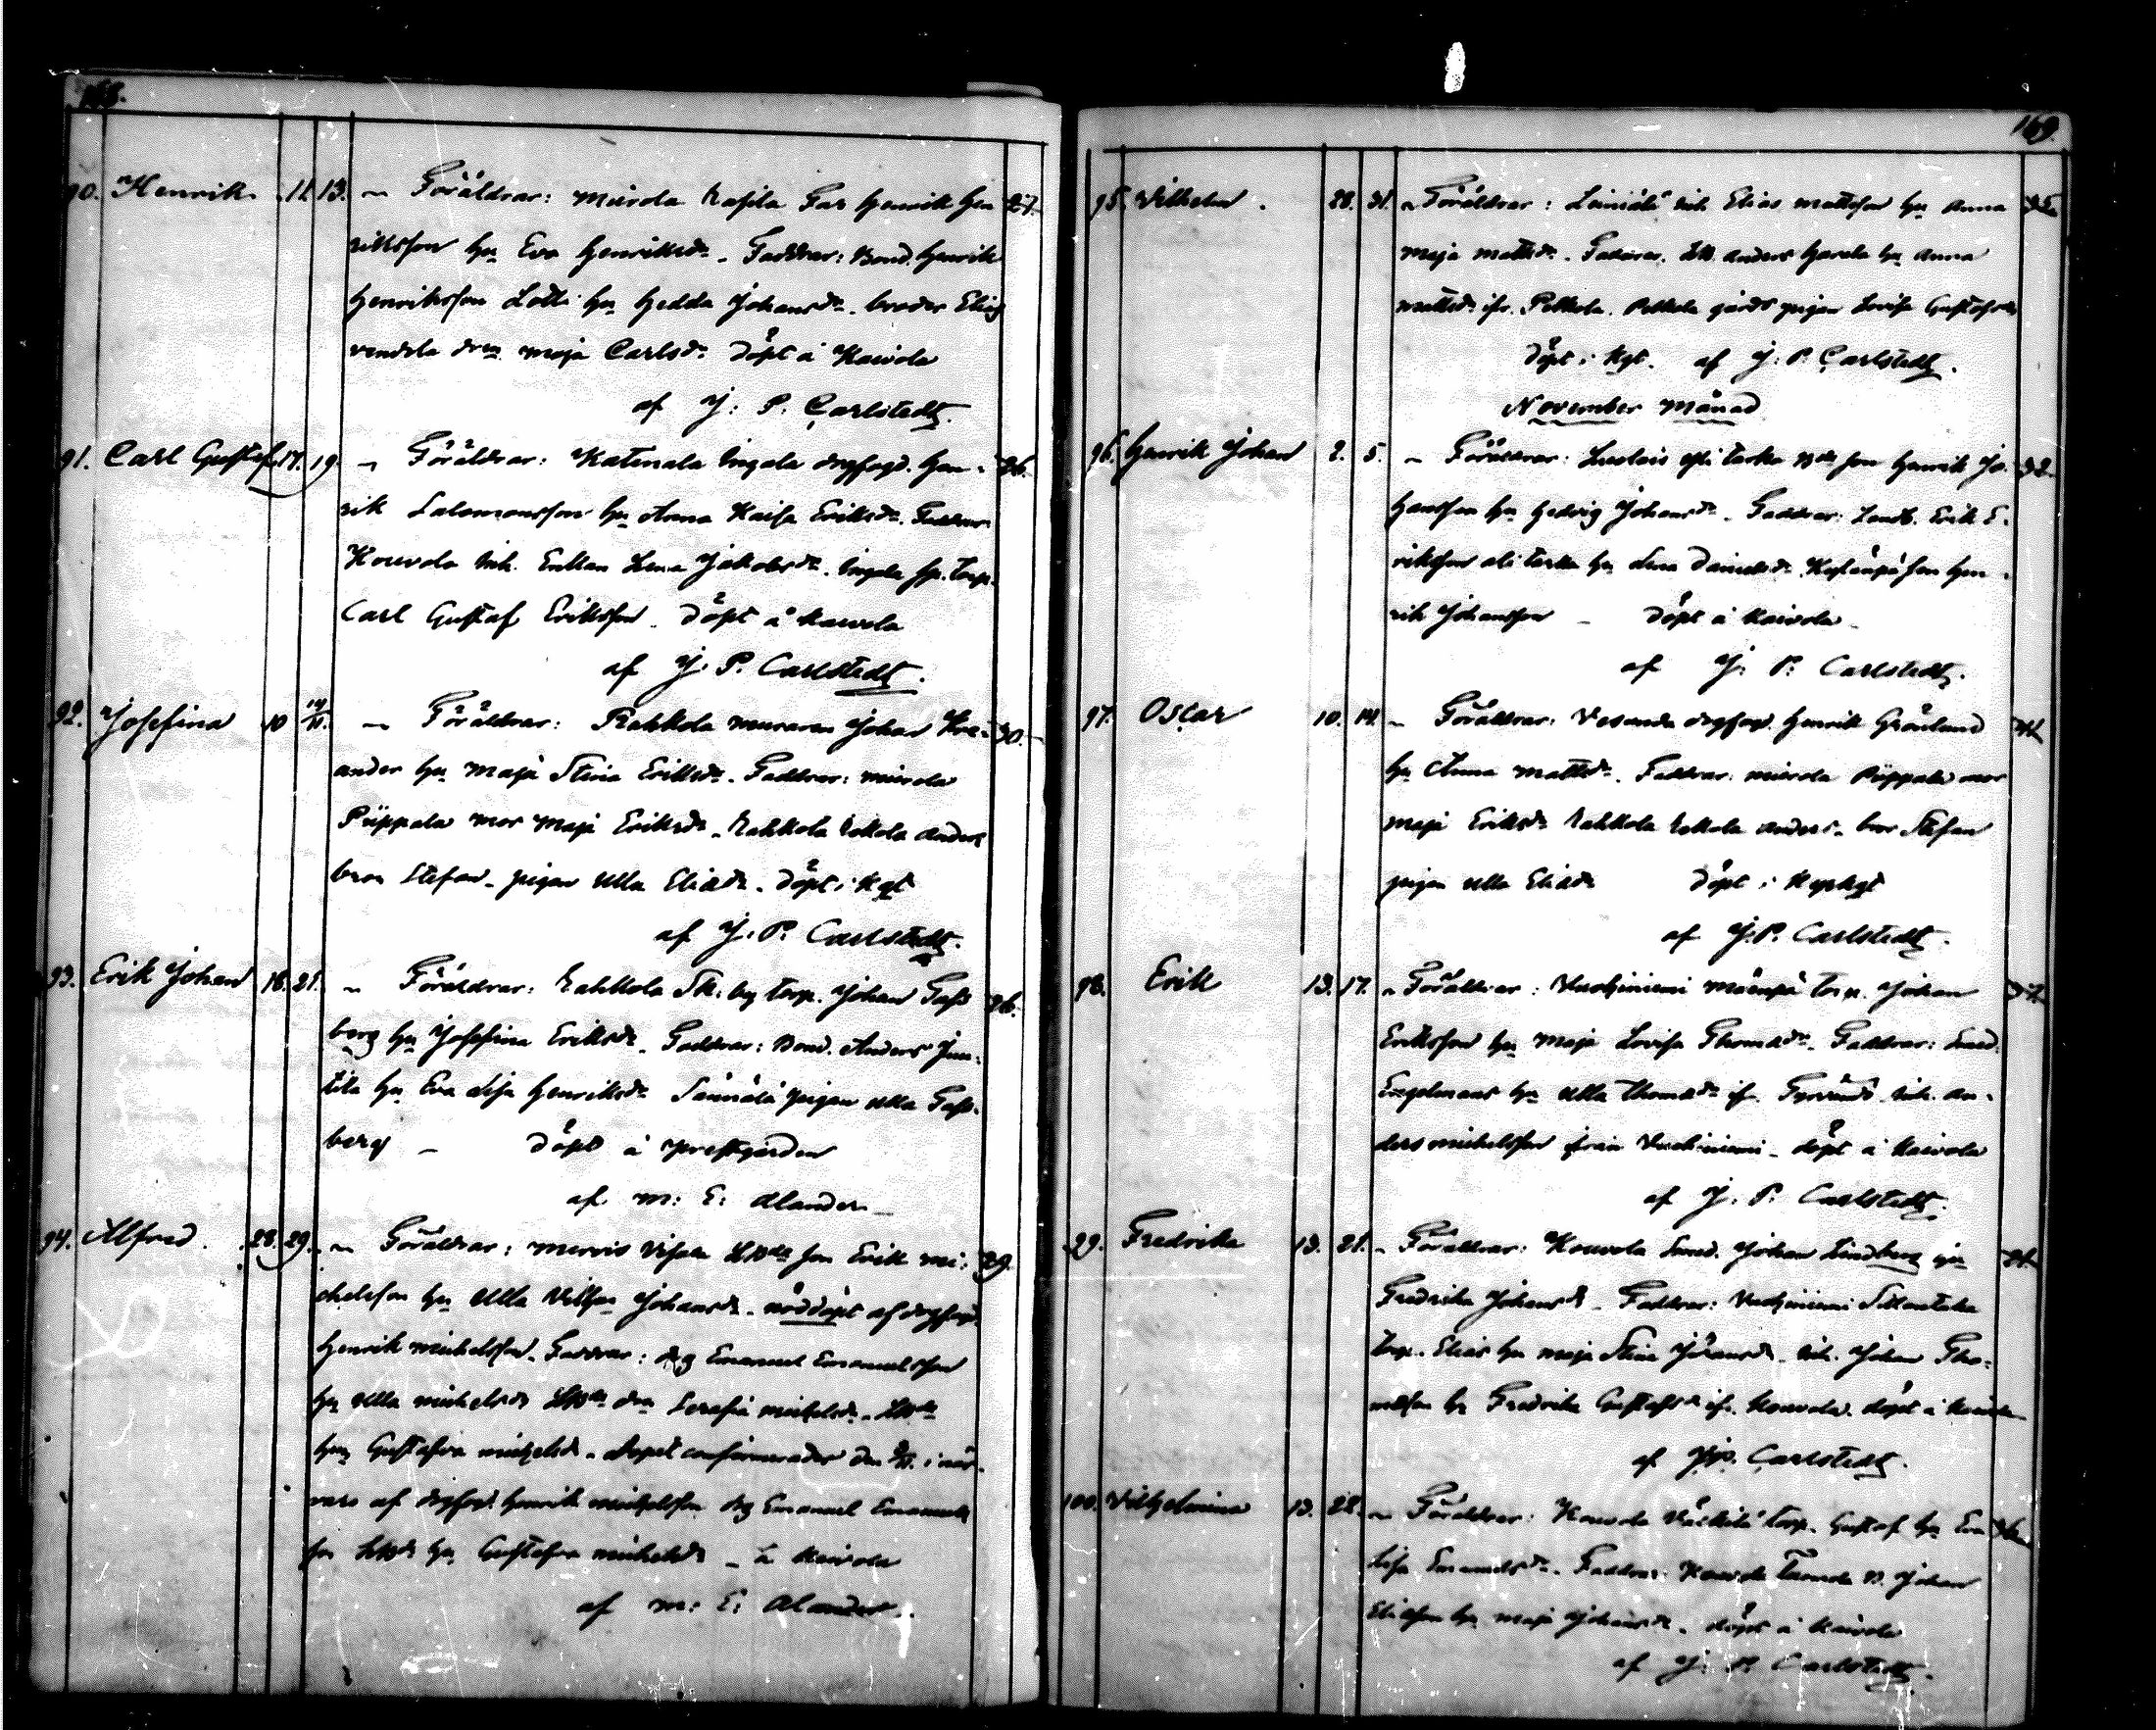 168.
90. Henrik 11. 13. – Föräldrar: Murola Far Henrik Hen 27.
riksson hu Eva Henriksdr. Faddrar: Bond. Henrik
Henriksson Lotti hu Hedda Johansdr. broder Elias
dren Maja Carlsdr. Döpt å Kaivola
af J. P. Carlstedt.
91. Carl Gustaf 17. 19. – Föräldrar: Katinala Ingala drgfogd. Hen- 36.
rik Salomonsson hu Anna Kaisa Eriksdr. Faddrar
Kouvola inh. Enkan Lena Jakobsdr. Ingala torp.
Carl Gustaf Eriksson. Döpt å Kaivola
af J. P. Carlstedt.
92. Josefina 10 14/11. – Föräldrar: Rahkola muraren Johan 30.
ander hu Maja Stina Eriksdr. Faddrar: Murola
Piippala mor Maja Eriksdr. Rahkola Eskola Anders
bror Stefan – pigan Ulla Eliadr. Döpt i Kgt
af J. P. Carlstedt.
93. Erik Johan 18. 21. – Föräldrar: Rahkola torp. Johan Fass 26.
berg hu Josefina Eriksdr. Faddrar: Bond. Anders Jun-
tila hu Eva Lisa Henriksdr. pigan Ulla Fass-
berg – Döpt å Prestgården
af M. E. Alander –
94. Alfred. 28. 29. – Föräldrar: Mervis son Erik Mi- 29.
chelsson hu Ulla Johansdr. nöddöpt af drgfogd.
Henrik Michelsson. Faddrar: drg Emanuel Emanuelsson
hu Ulla Michelsdr dren Serafia Michelsdr.
hu Gustafva Michelsdr. Dopet confirmerades den i när-
varo af drgfogd. Henrik Michelsson drg Emanuel Emanuels
son hu Gustafva Michelsdr – å Kaivola
af M. E. Alander.
169.
95. Vilhelm. 28. 31. – Föräldrar: inh. Elias Mattsson hu Anna
Maja Mattsdr. Faddrar: Anders hu Anna
Mattsdr ifr. Pelkola. Pelkola gårds pigan Lovisa Gustafsdr
Döpt i Kgt. af J. P. Carlstedt.
November Månad
96. Henrik Johan 2. 5. – Föräldrar: son Henrik Jo- 32.
hansson hu Hedvig Johansdr. Faddrar: Landb. Erik E-
riksson hu Lena Danielsdr. son Hen-
rik Johansson – Döpt å Kaivola –
af J. P. Carlstedt.
97. Oscar 10. 14. – Föräldrar: Vesunda drgfogd. Henrik Grönlund
hu Anna Mattsdr. Faddrar: Murola Piippala mor
Maja Eriksdr Rahkola Eskola Anders – bror Stefan
pigan Ulla Eliadr Döpt i Kyrkgt
af J. P. Carlstedt.
98. Erik 13. 17. – Föräldrar: Vuohiniemi Mäenpä torp. Johan
Eriksson hu Maja Lovisa Thomadr. Faddrar: Smed.
Engelmans hu Ulla Thomadr ifr. inh. An-
ders Michelsson från Vuohiniemi – döpt å Kaivola
af J. P. Carlstedt.
99. Fredrika 13. 21. – Föräldrar: Kouvola Smed. Johan Lindberg hu
Fredrika Johansdr – Faddrar: Vuohiniemi
torp. Elias hu Maja Stina Johansdr. inh. Johan Tho-
masson hu Fredrika Gustafsdr ifr. Kouvola. döpt å Kaivola
af J. P. Carlstedt.
100. Vilhelmina 13. 28. – Föräldrar: Kouvola torp. Gustaf hu Eva
Lisa Emanuelsdr. Faddrar: Kouvola B. Johan
Eliasson hu Maja Johansdr. döpt å Kaivola
af J. P. Carlstedt.